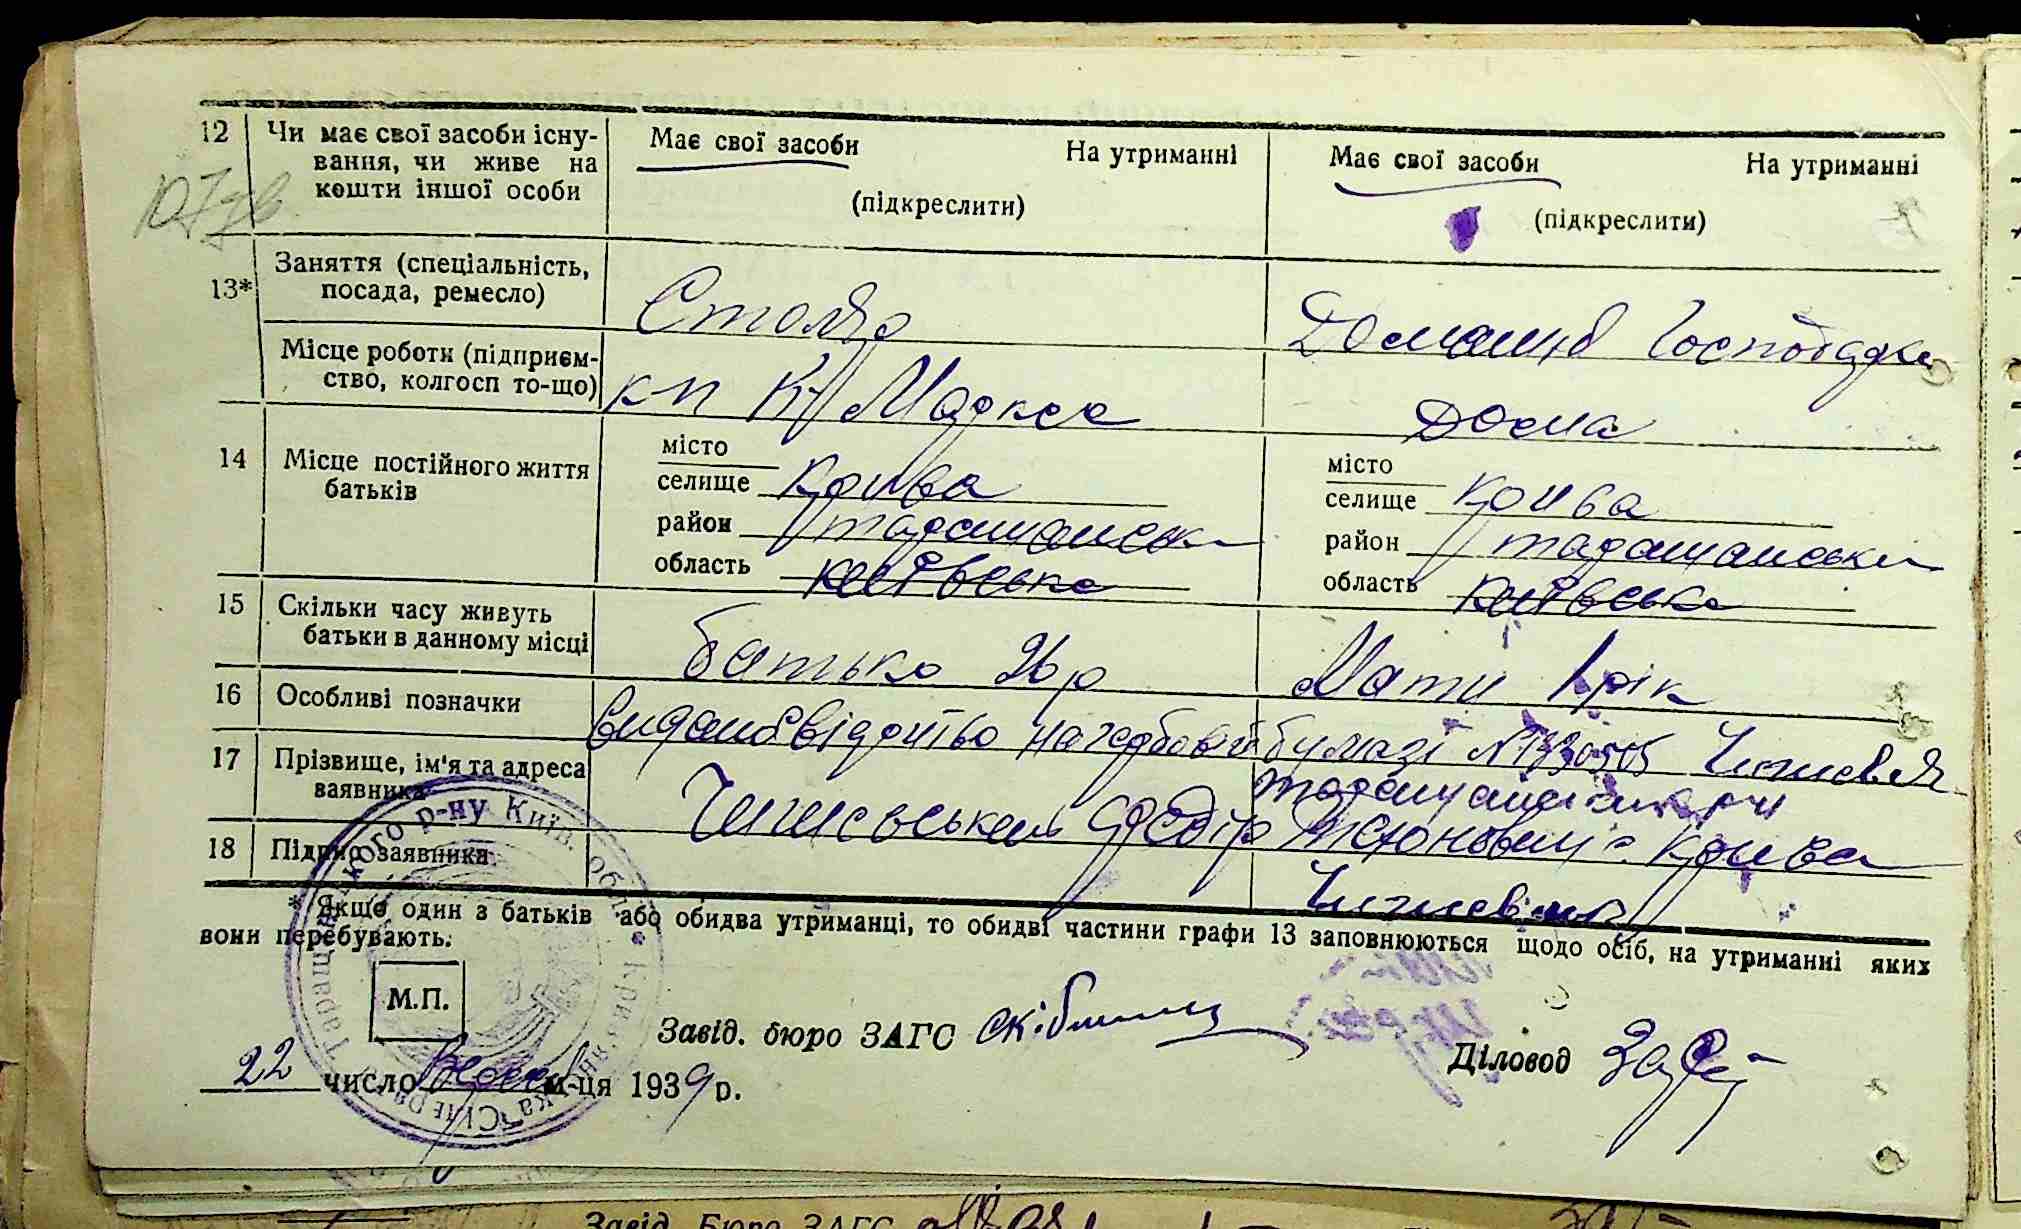 12 Чи має свої засоби існу- Має свої засоби На утриманні Має свої засоби На утриманні
вання, чи живе на
кошти іншої особи (підкреслити) (підкреслити)
107
13* Заняття (спеціальність,
посада, ремесло) Столяр Домашнє Господарка
Місце роботи (підприєм-
ство, колгосп то-що) кп К/Маркса Дома
14 Місце постійного життя
батьків
місто місто
селище Крива селище Крива
район таращанськи район таращанськи
область київська область київська
15 Скільки часу живуть
батьки в данному місці батько 26 р Мати 1 рік
16 Особливі позначки видано свідоцтво на гербовой бумазі №
17 Прізвище, ім'я та адреса
заявника Федір с. Крива
18 Підпис заявника
* Якщо один з батьків або обидва утриманці, то обидві частини графи 13 заповнюються щодо осіб, на утриманні яких
вони перебувають.
М.П.
Завід. бюро ЗАГС
Діловод
22 число м-ця 1939 р.
р-ну Київ. обл.
Завід. Бюро ЗАГС